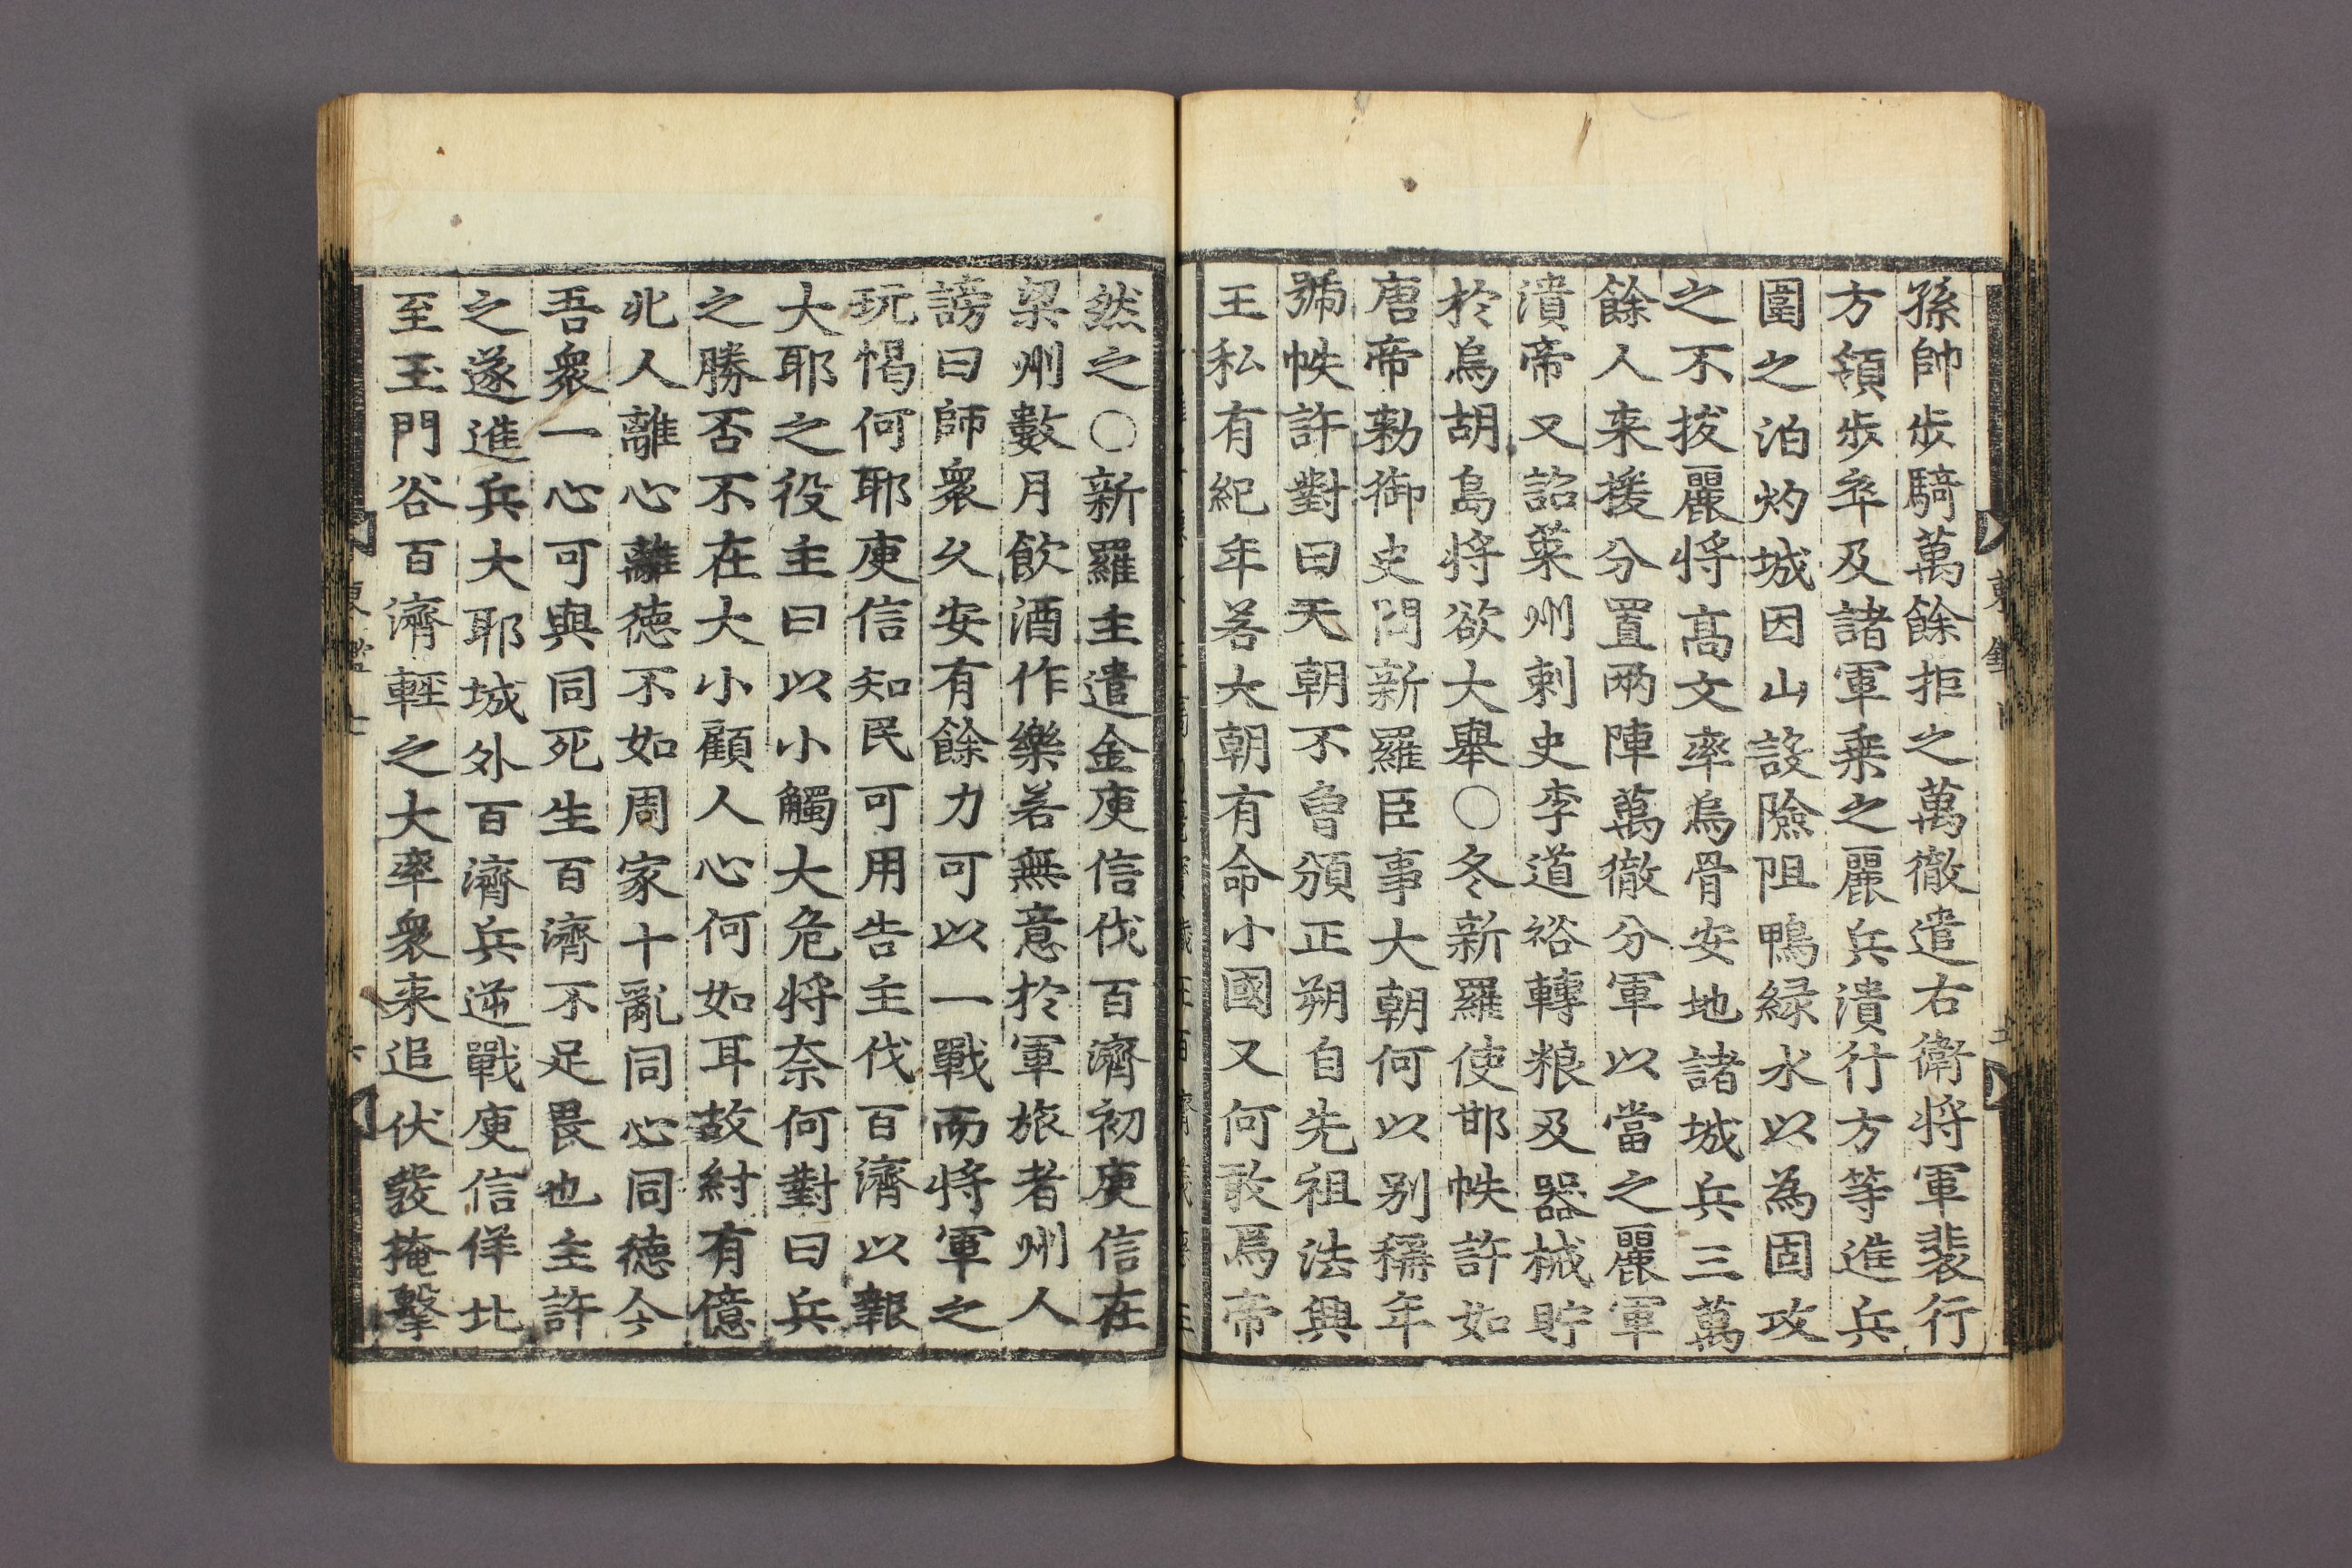 孫帥步騎萬餘拒之萬徹遣右衛將軍裴行
方領步卒及諸軍乗之麗兵潰行方等進兵
圍之泊灼城因山設險阻鴨緑水以為固攻
之不拔麗將髙文率烏骨安地諸城兵三萬
餘人来援分置兩陣萬徹分軍以當之麗軍
潰帝又詔萊州刺史李道裕轉粮及器械貯
於烏胡島将欲大舉○冬新羅使邯帙許如
唐帝勑御史問新羅臣事大朝何以别稱年
號帙許對曰天朝不曾頒正朔自先祖法興
王私有紀年若大朝有命小國又何敢焉帝
然之○新羅主遣金庾信伐百濟初庾信在
梁州數月飲酒作樂若無意於軍旅者州人
謗曰師衆久安有餘力可以一戰而将軍之
玩愒何耶庾信知民可用告主伐百濟以報
大耶之役主曰以小觸大危将奈何對曰兵
之勝否不在大小顧人心何如耳故紂有億
兆人離心離徳不如周家十亂同心同徳今
吾衆一心可與同死生百濟不足畏也主許
之遂進兵大耶城外百濟兵逆戰庾信佯北
至玉門谷百濟輕之大率衆来追伏發掩擊